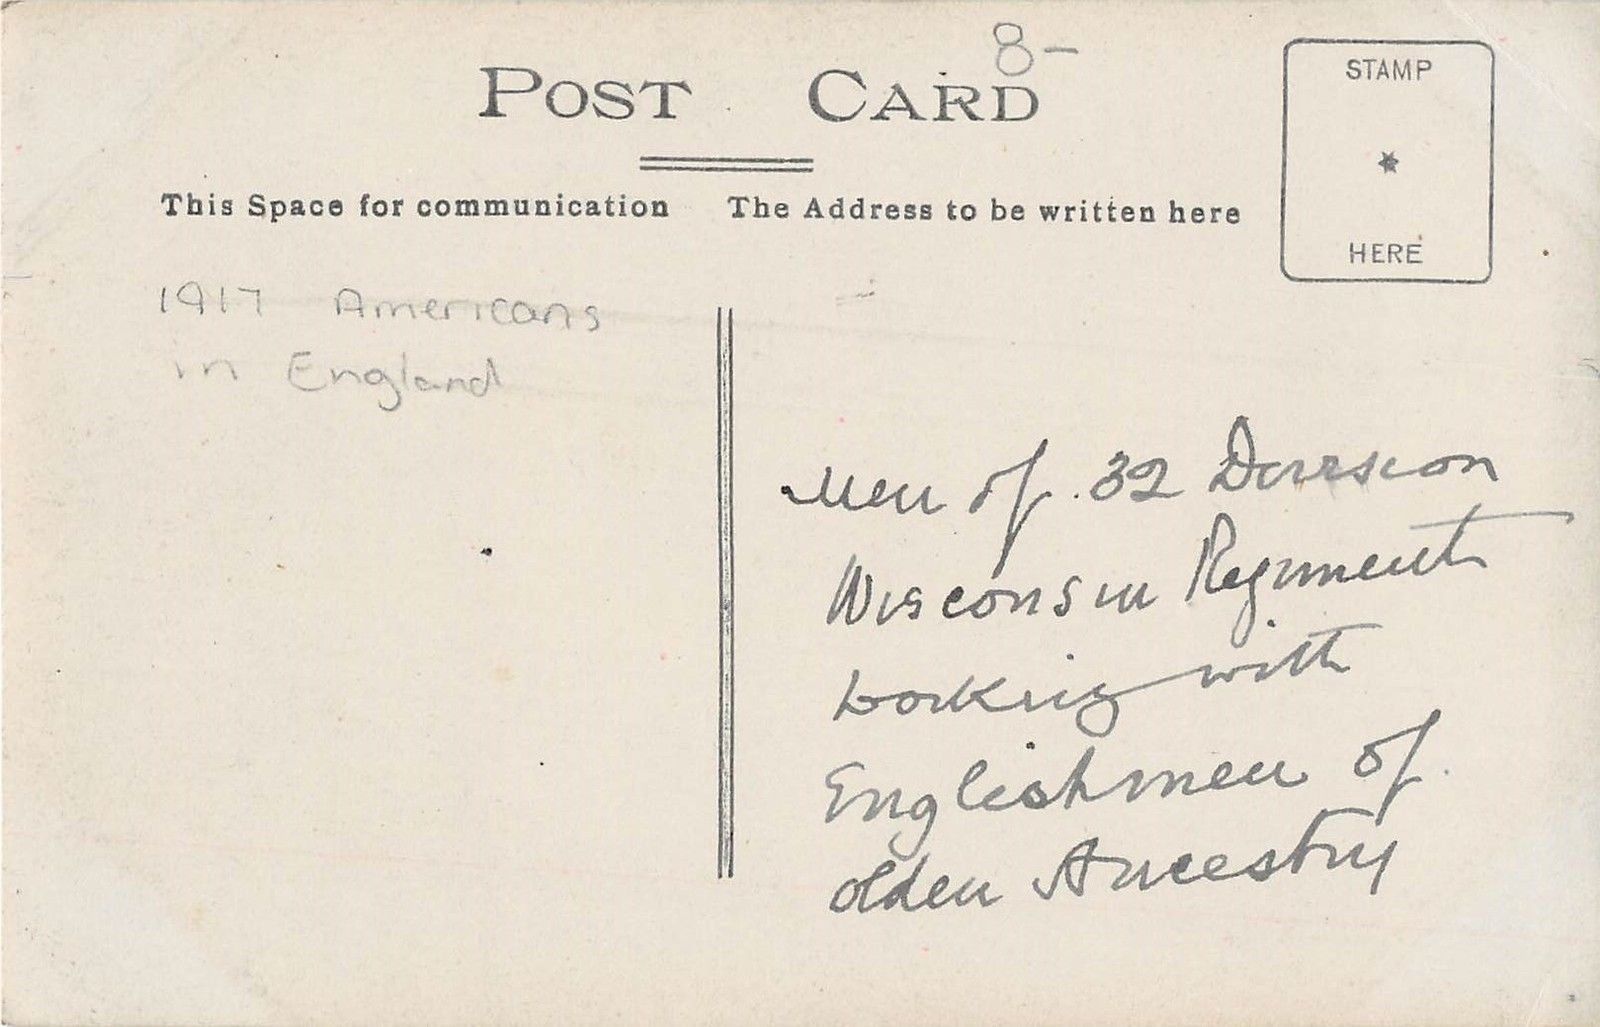 8-
POST CARD
STAMP
HERE
This Space for communication
The Address to be written here
1917 Americans
in England
Men of 32 Division
Wisconsin Regiment
working with
Englishmen of
olden Ancestry